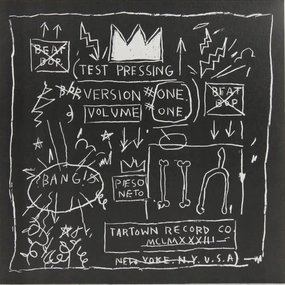 BEAT
BOP
TEST PRESSING
VERSION #ONE
VOLUME #ONE
BEAT
BOP
!BANG!
PESO
NETO
TARTOWN RECORD CO
MCLMXXXIII
NEW YORK, N.Y. U.S.A